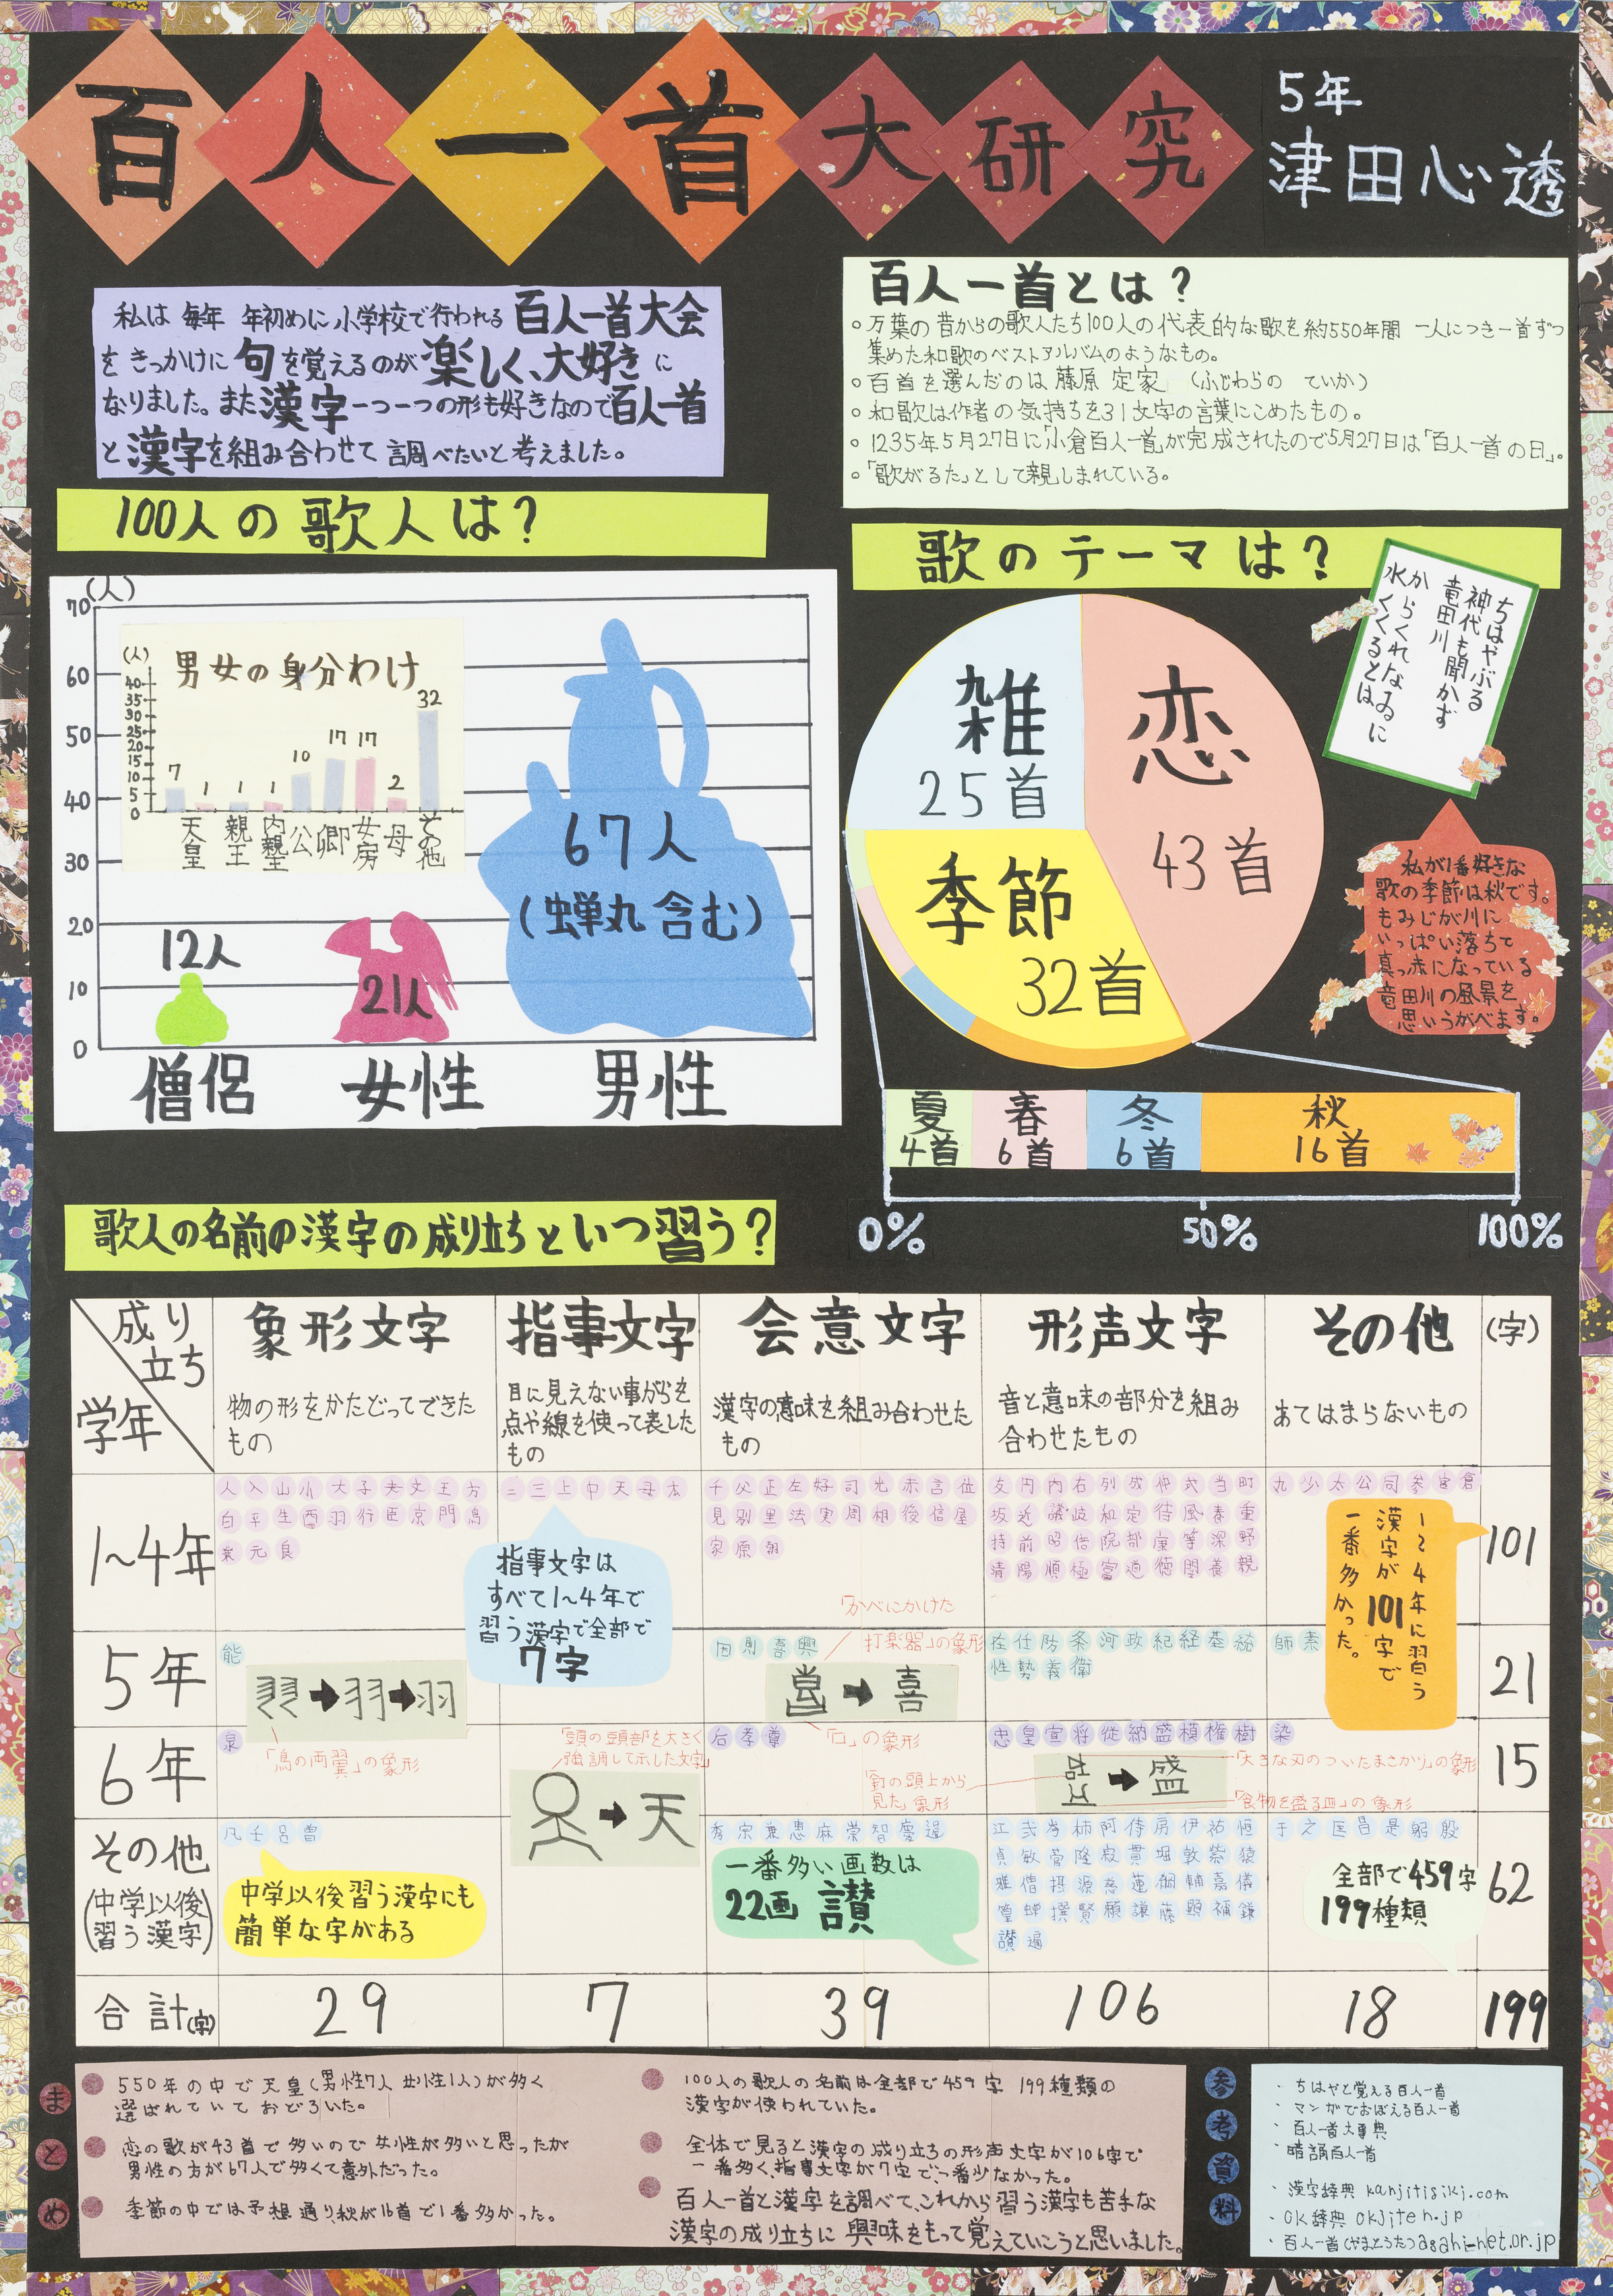 百人一首大研究
5年
津田心透
私は 毎年 年初めに小学校で行われる 百人一首大会
をきっかけに 句を覚えるのが楽しく、大好きに
なりました。また漢字一つ一つの形も好きなので百人一首
と漢字を組み合わせて 調べたいと考えました。
百人一首とは?
・万葉の昔からの歌人たち100人の代表的な歌を約550年間 一人につき一首ずつ
集めた和歌のベストアルバムのようなもの。
・百首を選んだのは 藤原 定家 (ふじわらの ていか)
・和歌は作者の気持ちを31文字の言葉にこめたもの。
・1235年5月27日に「小倉百人一首」が完成されたので5月27日は「百人一首の日」。
・「歌がるた」として親しまれている。
100人の歌人は?
(人)
70
60
50
40
30
20
10
0
男女の身分わけ
(人)
40
35
30
25
20
15
10
5
0
7
1
1
1
10
17
17
2
32
天皇
親王
内親王
公
卿
女房
母
その他
12人
21人
67人
(蝉丸含む)
僧侶
女性
男性
歌のテーマは?
恋
43首
雑
25首
季節
32首
ちはやぶる
神代も聞かず
竜田川
からくれなゐに
水くくるとは
私が1番好きな
歌の季節は秋です。
もみじが川に
いっぱい落ちて
真っ赤になっている
竜田川の風景を
思いうかべます。
夏
4首
春
6首
冬
6首
秋
16首
0%
50%
100%
歌人の名前の漢字の成り立ちといつ習う?
成り立ち
学年
象形文字
物の形をかたどってできた
もの
指事文字
目に見えない事がらを
点や線を使って表した
もの
会意文字
漢字の意味を組み合わせた
もの
形声文字
音と意味の部分を組み
合わせたもの
その他
あてはまらないもの
(字)
1~4年
人入山小大子夫文王方
白平生西羽行臣京門鳥
業元良
二三上中天母本
指事文字は
すべて1~4年で
習う漢字で全部で
7字
千父正左好司光赤言位
見別里法実周相後信屋
家原朝
友円内右列成仲式当町
坂近議岐和定待風春重
持前昭倍院部康等深野
清陽順極富道徳関養親
九少太公同参宮倉
1~4年に習う
漢字が101字で
一番多かった。
101
5年
能
羽
「鳥の両翼」の象形
因則喜興
「かべにかけた
打楽器」の象形
喜
「口」の象形
在任防条河政紀経基裕
性勢義衛
師素
21
6年
泉
「頭の頭部を大きく
強調して示した文字」
天
后孝尊
忠皇宣将従納盛模権樹
「釘の頭上から
見た」象形
盛
「大きな刃のついたまさかり」の象形
「食物を盛る皿」の象形
染
15
その他
(中学以後
習う漢字)
凡壬呂曽
中学以後習う漢字にも
簡単な字がある
秀宗兼恵麻崇智慶遥
一番多い画数は
22画 讃
江弐岑柿阿侍房伊祐恒
貞敏菅隆寂貫堀敦紫猿
雅僧摂源慈蓮綱輔嘉儀
篁蝉撰賢願譲藤顕補鎌
讃遍
于之匡昌是躬殷
全部で459字
199種類
62
合計(字)
29
7
39
106
18
199
まとめ
550年の中で天皇(男性7人 女性1人)が多く
選ばれていておどろいた。
恋の歌が43首で多いので女性が多いと思ったが
男性の方が67人で多くて意外だった。
季節の中では予想通り、秋が16首で1番多かった。
100人の歌人の名前は全部で459字 199種類の
漢字が使われていた。
全体で見ると漢字の成り立ちの形声文字が106字で
一番多く、指事文字が7字で、一番少なかった。
百人一首と漢字を調べて、これから習う漢字も苦手な
漢字の成り立ちに興味をもって覚えていこうと思いました。
参考資料
・ちはやと覚える百人一首
・マンガでおぼえる百人一首
・百人一首大事典
・暗誦百人一首
・漢字辞典 kanjitisiki.com
・OK辞典 okjiten.jp
・百人一首(やまとうた)asahi-net.or.jp